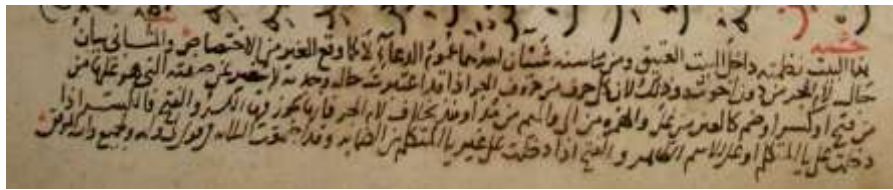 هذا البيت نظمته داخل البيت العتيق ومن محاسنه شيئان احدهما عموم الدعاء لا كما وقع لغيره من الاختصاص والثاني بيان
حال لام الجر من دون اخواته وذلك لان كل حرف من حروف الجر اذا قد اعتبرت حاله وجدته لا يتغير عن صفته التي هو عليها من
من فتح او كسر او ضم كالعين من على والهمزة من الى والميم من مذ او منذ بخلاف لام الجر فانها يجوز فيها الكسر والفتح فالكسر اذا
دخلت على يا المتكلم او على الاسم الظاهر والفتح اذا دخلت على غير يا المتكلم من الضماير وقد اجتمعت